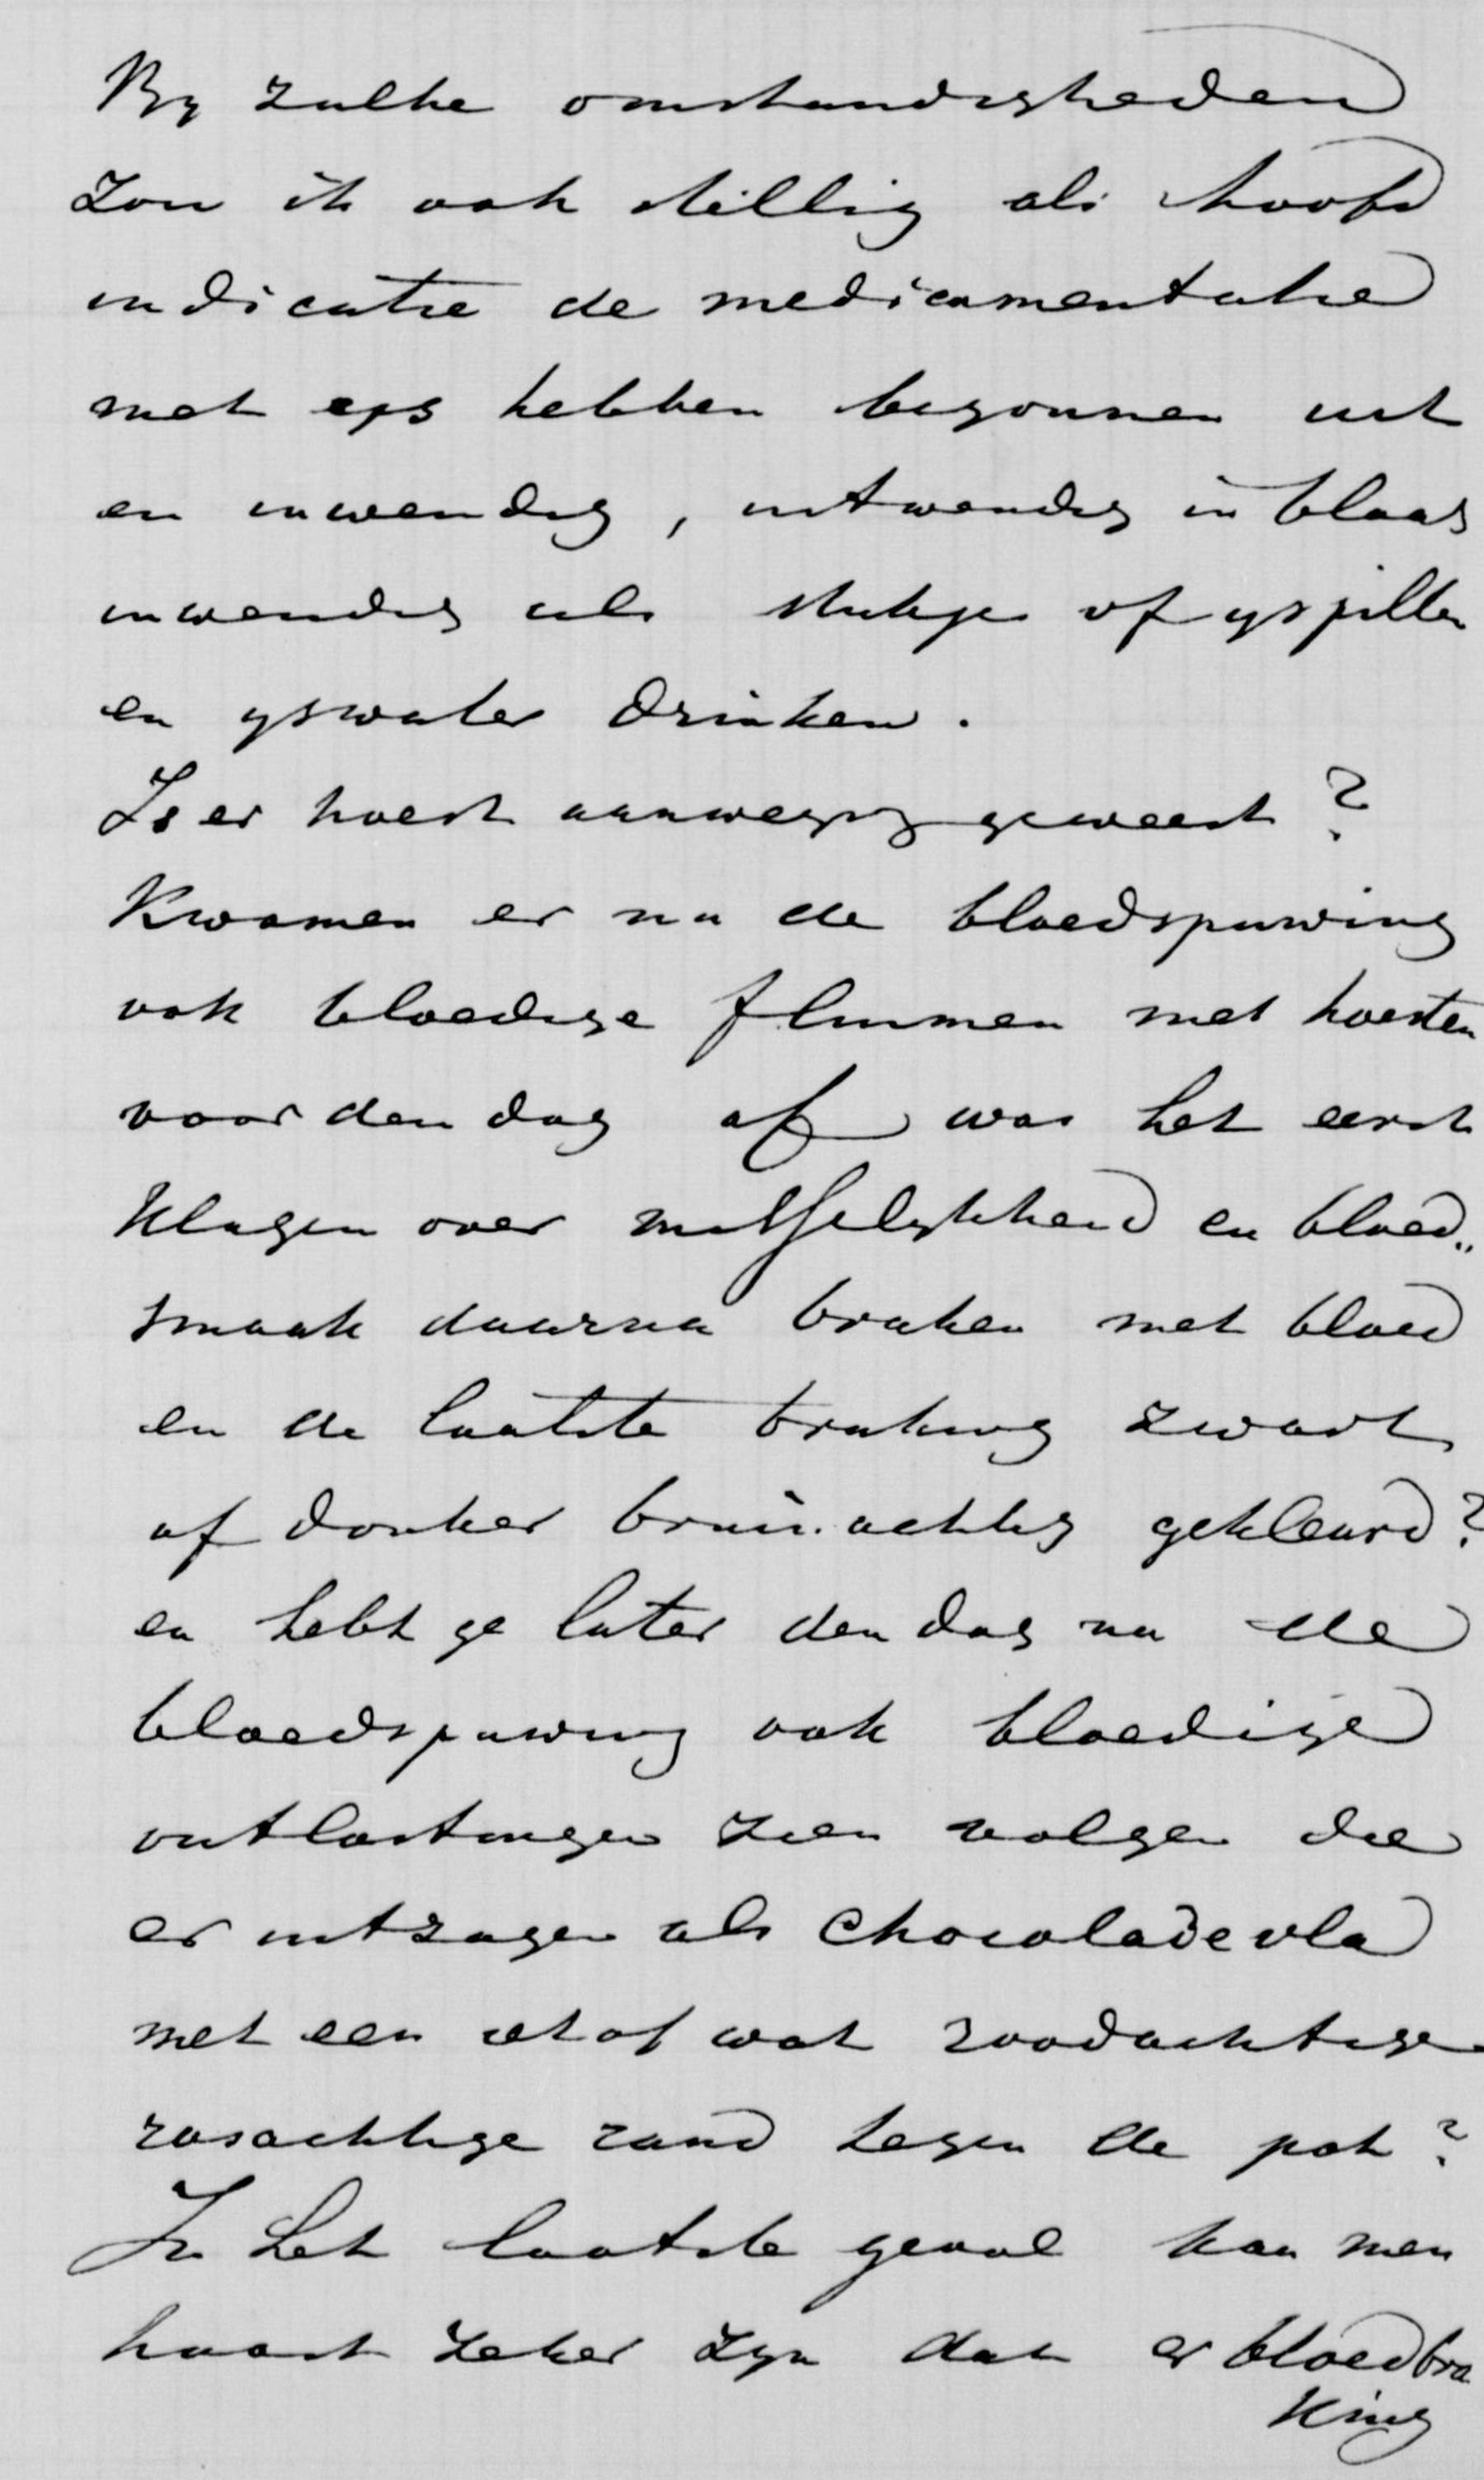 By zulke omstandigheden
zou ik ook stellig als hoofd
indicatie de medicamentatie
met eys hebben begonnen uit
en inwendig, uitwendig in blaas
inwendig als stukje of yspillen
en yswater drinken.
Is er hoest aanwezig geweest?
Kwamen er na de bloedspuwing
ook bloedige fluimen met hoesten
voor den dag of was het eerst
klagen over misselykheid en bloed„
smaak daarna braken met bloed
en de laatste braking zwart
of donker bruinachtig gekleurd?
en hebt ge later den dag na de
bloedspuwing ook bloedige
ontlastingen zien volgen die
er uitzagen als chocoladevla
met een et of wat roodachtige
rosachtige rand tegen de pot?
In het laatste geval kan men
haast zeker zyn dat er bloedbra
king